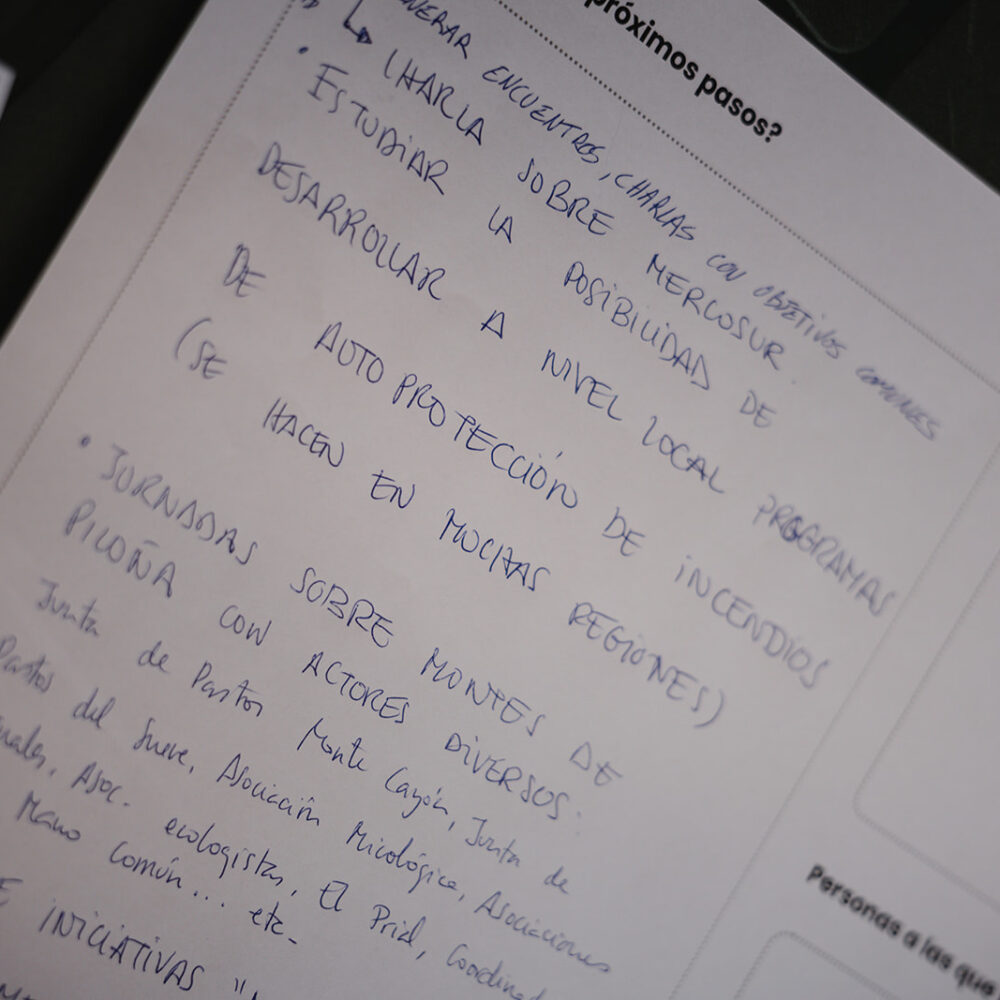 próximos pasos?
ENCUENTROS, CHARLAS CON OBJETIVOS COMUNES
↳ CHARLA SOBRE MERCOSUR.
• ESTUDIAR LA POSIBILIDAD DE
DESARROLLAR A NIVEL LOCAL PROGRAMAS
DE AUTO PROTECCIÓN DE INCENDIOS
(SE HACEN EN MUCHAS REGIONES)
• JORNADAS SOBRE MONTES DE
PILOÑA CON ACTORES DIVERSOS:
Junta de Pastos Monte Cayón, Junta de
Pastos del Sueve, Asociación Micológica, Asociaciones
Asoc. ecologistas, El Prial,
Mano Común... etc-
INICIATIVAS "
Personas a las que